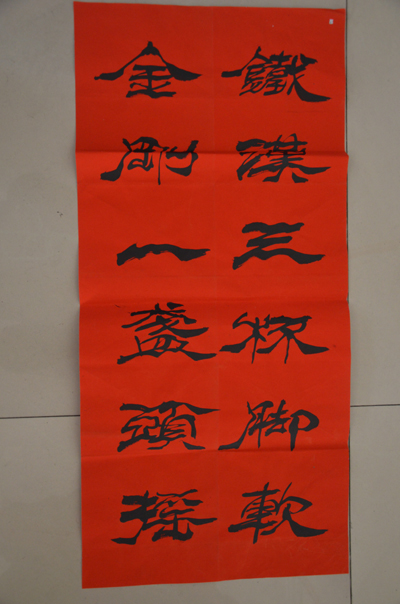 鐵漢三杯腳軟
金剛一盞頭搖